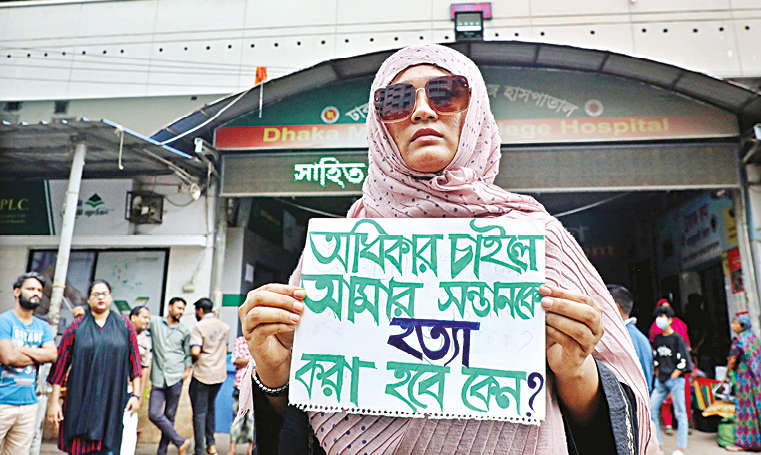 হাসপাতাল
Dhaka M ge Hospital
সাহিত
PLC
অধিকার চাইলে
আমার সন্তানকে
হত্যা
করা হবে কেন?